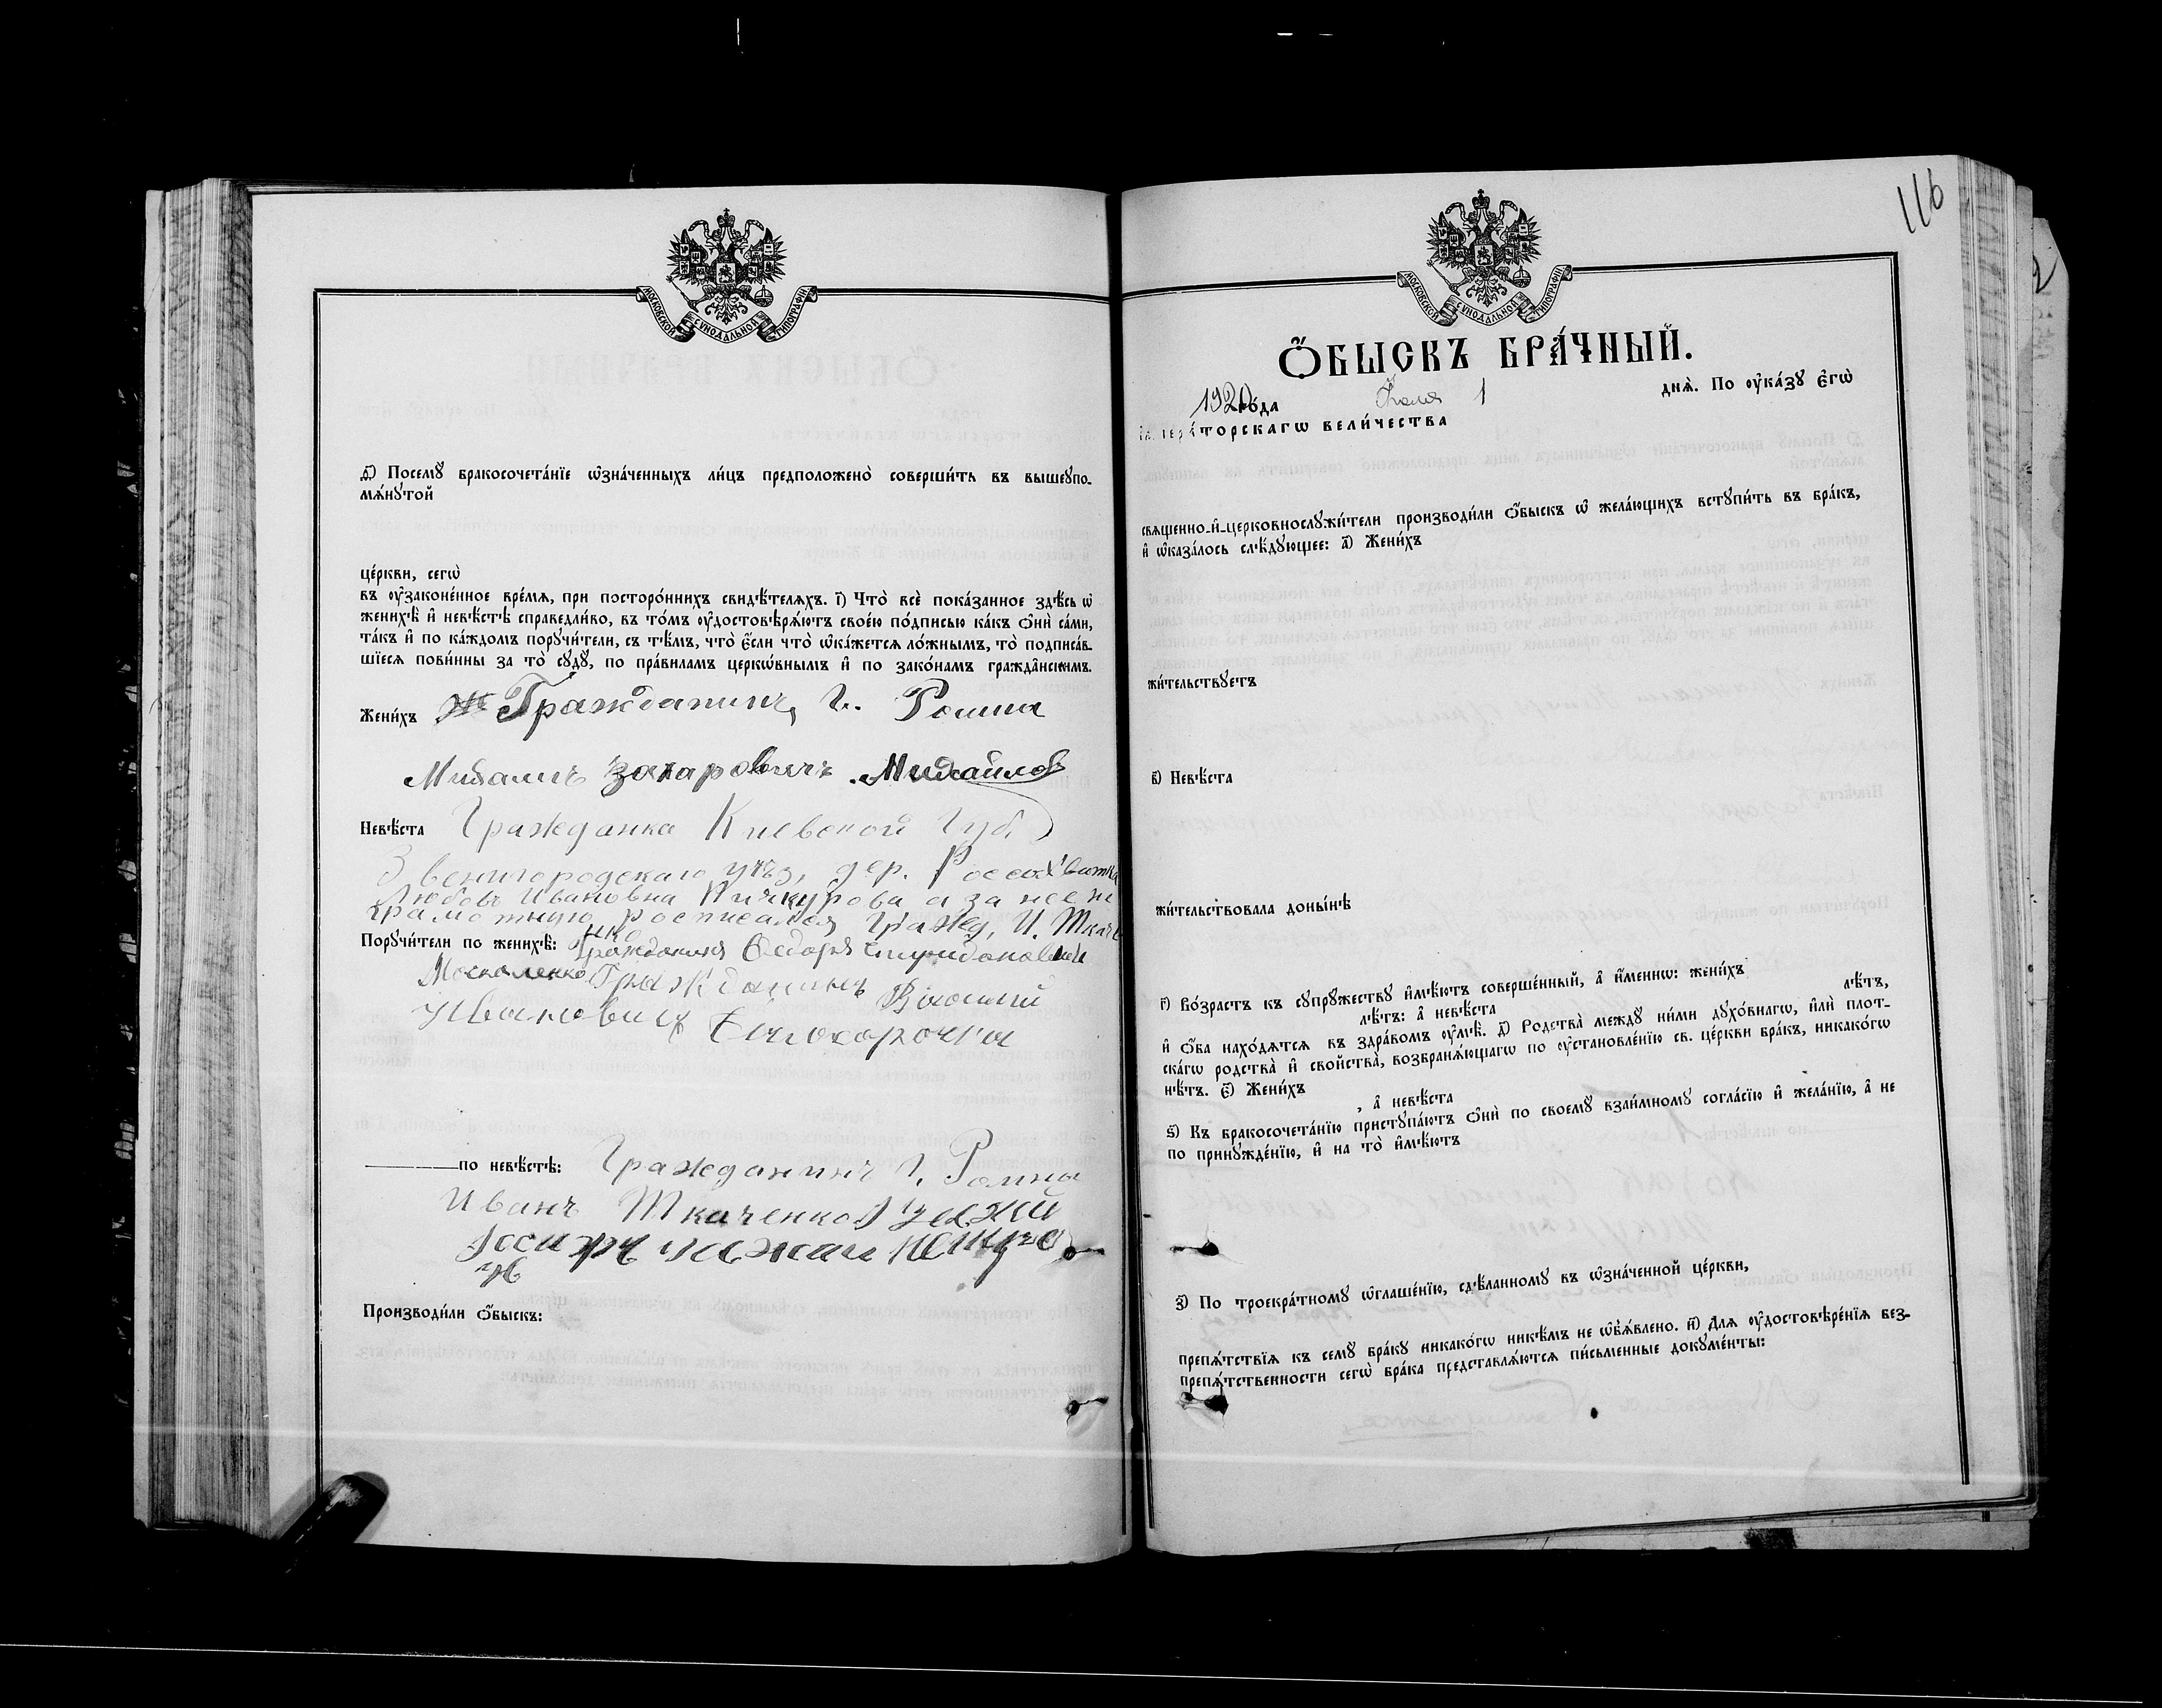 МОСКОВСКОЙ СѴНОДАЛЬНОЙ ТИПОГРАФІИ
д҃і) Посемꙋ̀ бракосочета́нїе ѡ҆зна́ченныхъ ли́цъ предположено̀ соверши́ть въ вышеꙋпо-
мѧ́нꙋтой
це́ркви, сегѡ̀
въ ᲂу҆зако́не́нное вре́мѧ, при посторо́ннихъ свидѣ́телѧхъ. і҃) Что̀ всѐ пока́занное здѣ́сь ѡ҆
женихѣ̀ и҆ невѣ́стѣ справедли́во, въ то́мъ ᲂу҆достовѣрѧ́ютъ свое́ю по́дписью ка́къ ѻ҆нѝ са́ми,
та́къ и҆ по ка́ждомъ порꙋчи́тели, съ тѣ́мъ, что̀ є҆́сли что̀ ѡ҆ка́жетсѧ ло́жнымъ, то̀ подписа́в-
шїесѧ пови́нны за то̀ сꙋдꙋ̀, по пра́виламъ церкѡ́внымъ и҆ по зако́намъ гражда̂нскимъ.
Жени́хъ Гражданинъ, г. Ромна
Михаилъ Захаровичъ Михайлов
Невѣ́ста Гражданка Киевской Губ.
Звенигородскаго уѣз, дер. Россоховатка
Любовь Ивановна Пичкурова а за нее не
грамотную росписался Гражд, И. Ткаче
Порꙋчи́тели по женихѣ̀: нко Гражданинъ Ѳедоръ Спиридоновичъ
Москаленко Гражданинъ
Ивановичъ
по невѣ́стѣ: Гражданинъ г. Ромны
Иванъ Ткаченко
Производи́ли ѻ҆́быскъ:
116
МОСКОВСКОЙ СѴНОДАЛЬНОЙ ТИПОГРАФІИ
Ѻ҆́БЫСКЪ БРА́ЧНЫЙ.
1920 го́да 1 днѧ̀. По ᲂу҆ка́зꙋ є҆гѡ̀
и҆мпера́торскагѡ вели́чества
свѧщенно-и҆-церковнослꙋжи́тели производи́ли ѻ҆́быскъ ѡ҆ жела́ющихъ встꙋпи́ть въ бра́къ,
и҆ ѡ҆каза́лось слѣ́дꙋющее: а҃) Жени́хъ
жи́тельствꙋетъ
в҃) Невѣ́ста
жи́тельствовала доны́нѣ
г҃) Во́зрастъ къ сꙋпрꙋ́жествꙋ и҆мѣ́ютъ соверше́нный, а҆ и҆́менно: жени́хъ лѣ́тъ,
лѣ́тъ: а҆ невѣ́ста
и҆ ѻ҆́ба нахо́дѧтсѧ въ здра́вомъ ᲂу҆мѣ̀. д҃) Родства̀ междꙋ ни́ми дꙋхо́внагѡ, и҆лѝ плот-
ска́гѡ родства̀ и҆ сво́йства̀, возбранѧ́ющагѡ по ᲂу҆становле́нїю св. це́ркви бра́къ, никако́гѡ
нѣ́тъ. є҃) Жени́хъ
, а҆ невѣ́ста
ѕ҃) Къ бракосочета́нїю пристꙋпа́ютъ ѻ҆нѝ по своемꙋ̀ взаи́мномꙋ согла́сїю и҆ жела́нїю, а҆ не
по принꙋжде́нїю, и҆ на то̀ и҆мѣ́ютъ
з҃) По троекра́тномꙋ ѡ҆глаше́нїю, сдѣ́ланномꙋ въ ѡ҆зна́ченной це́ркви,
препѧ́тствїѧ къ семꙋ̀ бра́кꙋ никако́гѡ никѣ́мъ не ѡ҆б̾ѧ́влено. и҃) Длѧ ᲂу҆достовѣре́нїѧ без-
препѧ́тственности сегѡ̀ бра́ка представлѧ́ютсѧ пи́сьменные докꙋме́нты: